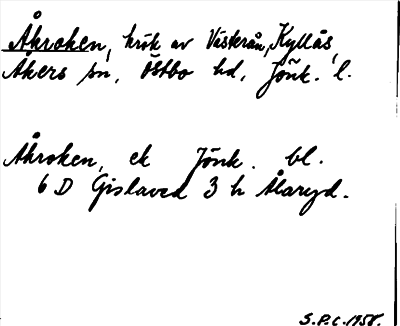 Åkroken, krök av Västerån, Kyllås,
Åkers sn, Östbo hd, Jönk. l.
Åkroken, ek Jönk. bl.
6 D Gislaved 3 h Ålaryd.
S.P.C. 1958.